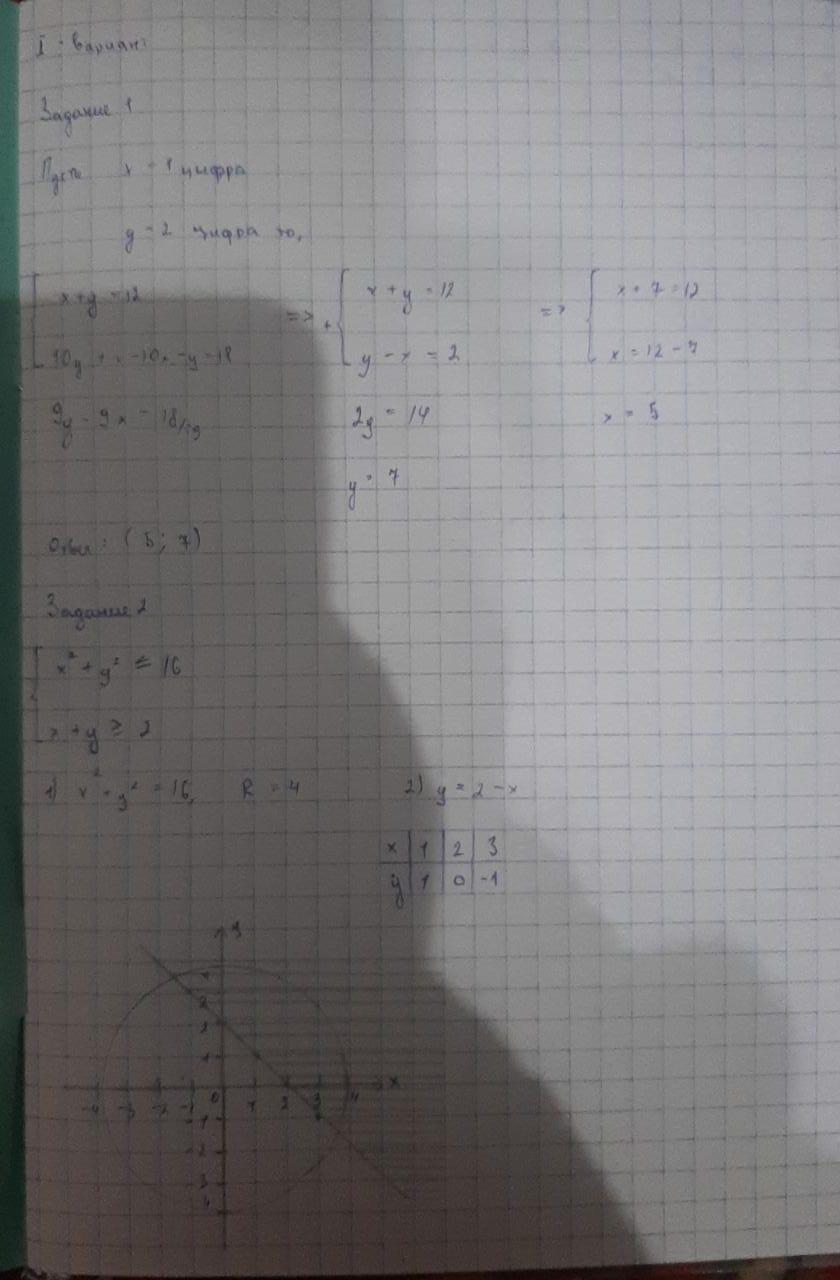 I - вариант
Задание 1
Пусть x - 1 цифра
y - 2 цифра то,
x + y = 12 => + x + y = 12 => x + 7 = 12
10y + x - 10x - y = 18 y - x = 2 x = 12 - 7
9y - 9x = 18/:9 2y = 14 x = 5
y = 7
Ответ: (5; 7)
Задание 2
x² + y² ≤ 16
x + y ≥ 2
1) x² + y² = 16, R = 4 2) y = 2 - x
x 1 2 3
y 1 0 -1
y
4
3
2
1
x
-4 -3 -2 -1 0 1 2 3 4
-1
-2
-3
-4